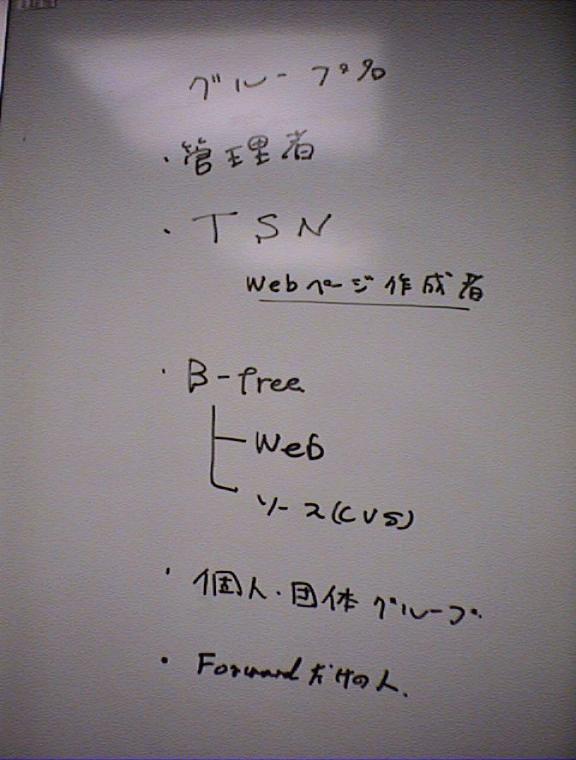 グループ名
・管理者
・TSN
Webページ作成者
・B-free
Web
ソース(CVS)
・個人・団体グループ
・Forwardだけの人.